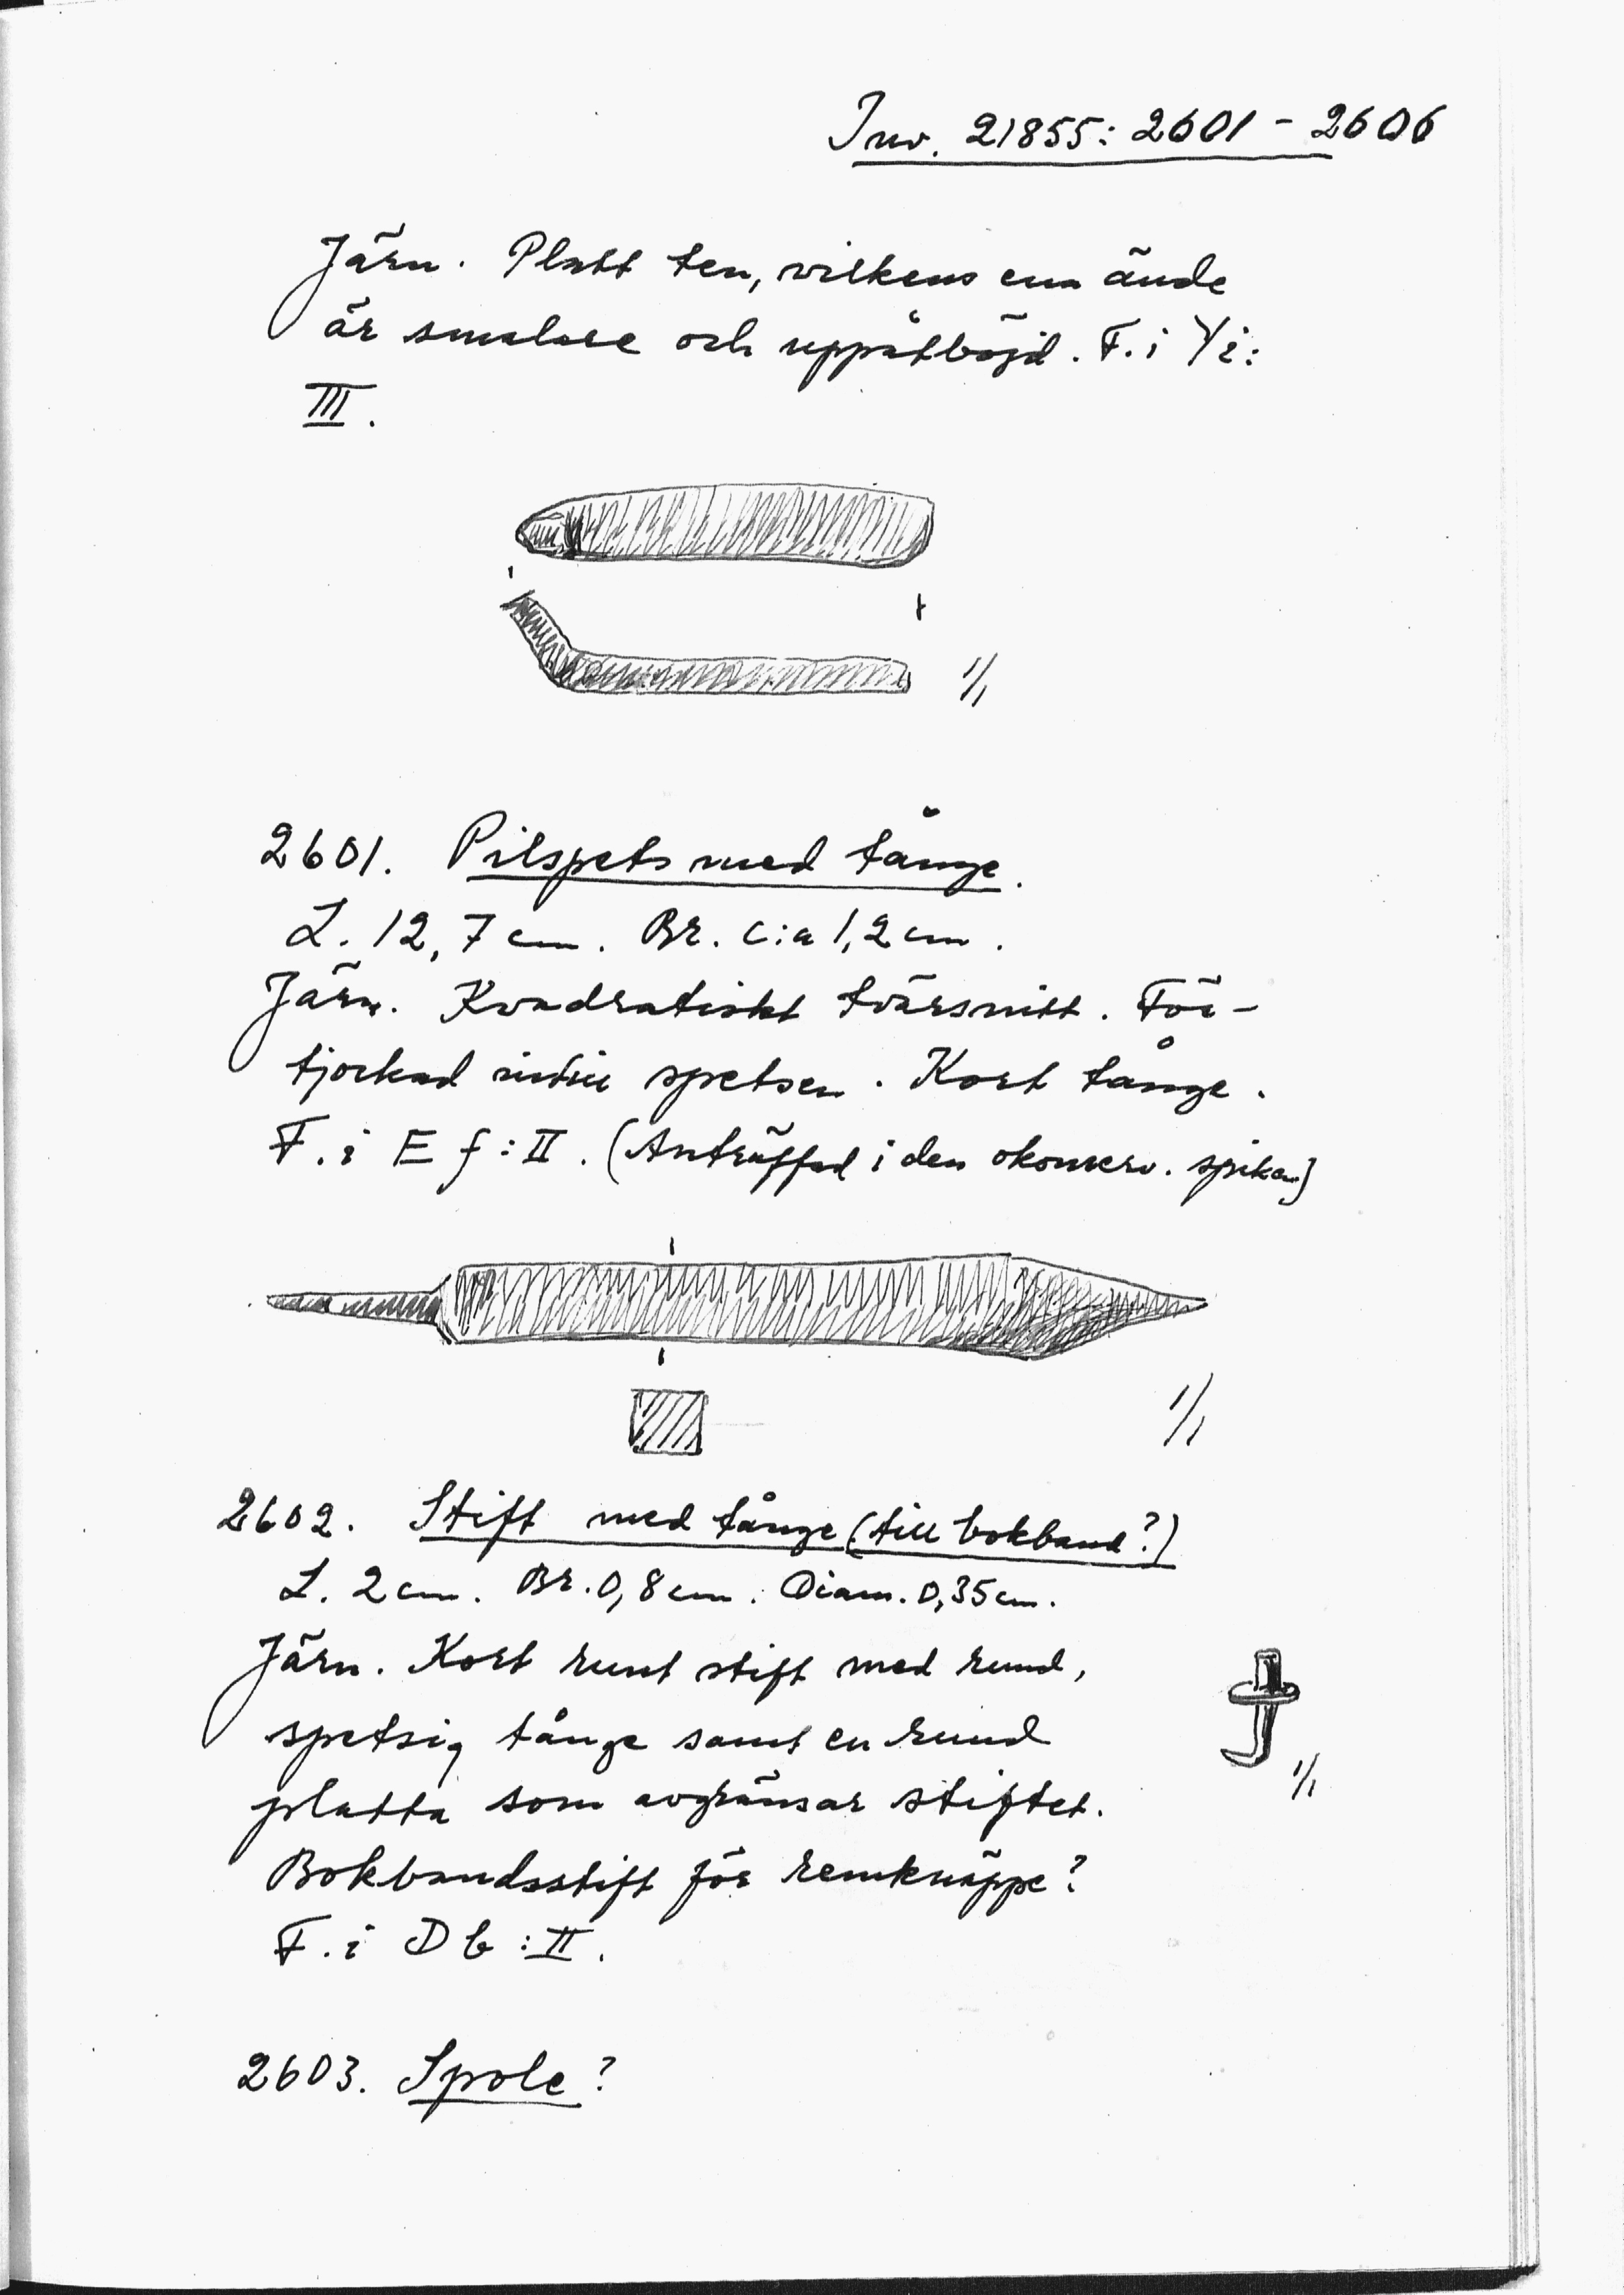 Inv. 21855: 2601 - 2606
Järn. Platt ten, vilkens ena ände
är smalare och uppåtböjd. F. i Yi:
III.
1/1
2601. Pilspets med tånge.
L. 12,7 cm. Br. c:a 1,2 cm.
Järn. Kvadratiskt tvärsnitt. För-
tjockad intill spetsen. Kort tånge.
F. i E f : II. (Anträffad i den okonserv. spiken)
1/1
2602. Stift med tånge (till bokband?)
L. 2 cm. Br. 0,8 cm. Diam. 0,35 cm.
Järn. Kort runt stift med rund,
spetsig tånge samt en rund
platta som avgränsar stiftet.
1/1
Bokbandsstift för remknäppe?
F. i D b : II.
2603. Spole?